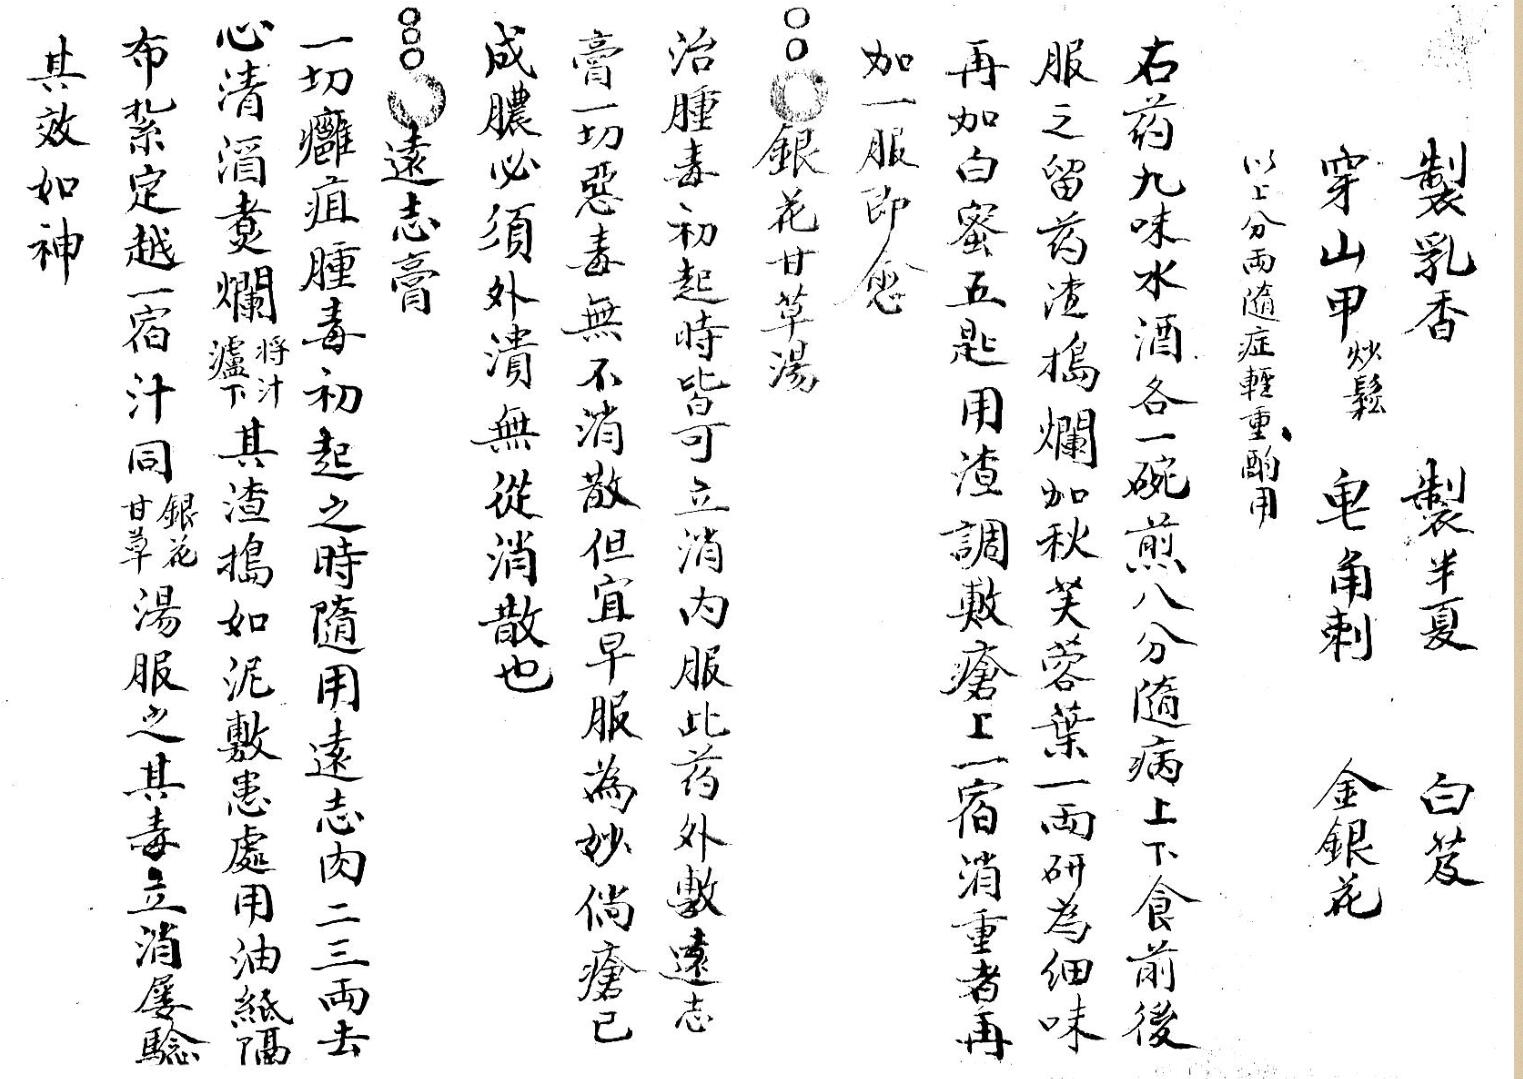 製乳香　製半夏　白芨
穿山甲炒鬆　皂角刺　金銀花
以上分兩隨症輕重酌用
右药九味水酒各一碗煎八分隨病上下食前後
服之留药渣搗爛加秋芙蓉葉一兩研為細味
再加白蜜五匙用渣調敷瘡上一宿消重者再
加一服即愈
銀花甘草湯
治腫毒初起時皆可立消内服此药外敷遠志
膏一切惡毒無不消散但宜早服為妙倘瘡已
成膿必須外潰無從消散也
遠志膏
一切癰疽腫毒初起之時隨用遠志肉二三兩去
心清酒煑爛將汁瀘下其渣搗如泥敷患處用油紙隔
布紮定越一宿汁同銀花甘草湯服之其毒立消屢驗
其效如神